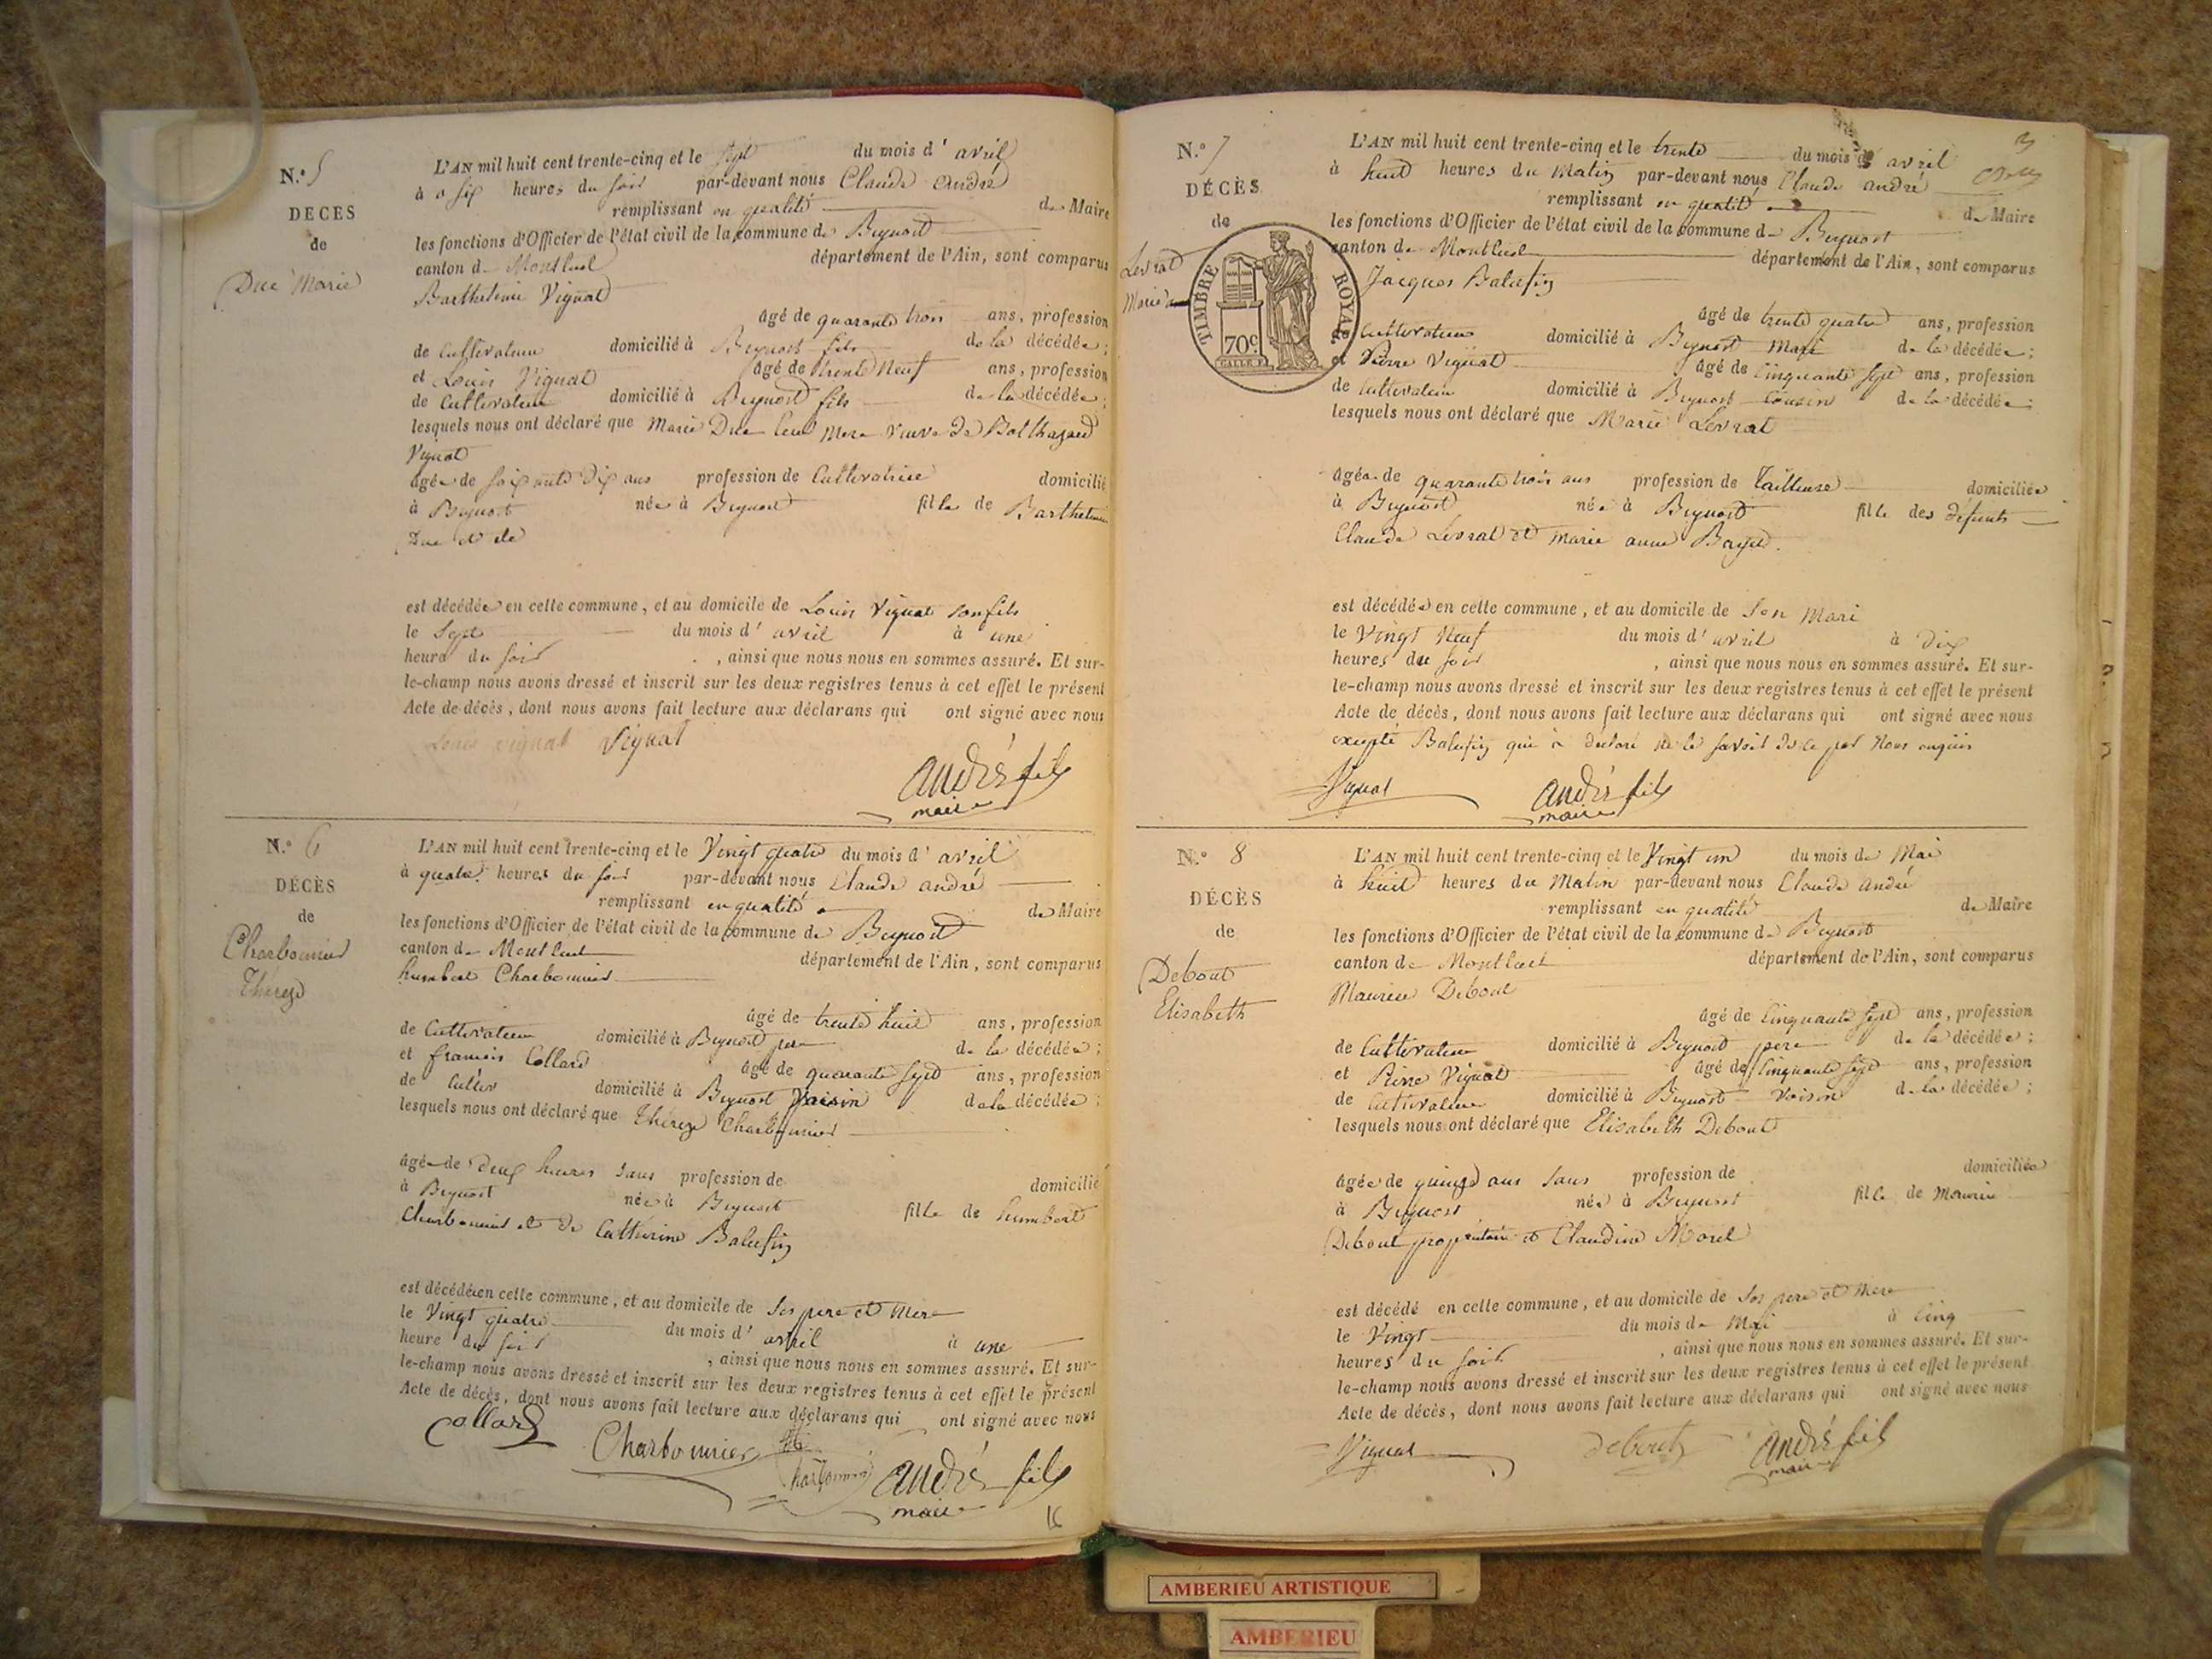 N.º 5
DÉCÈS
de
Duc Marie
L'AN mil huit cent trente-cinq et le sept du mois d' avril
à six heures du soir par-devant nous Claude André
remplissant en qualité de Maire
les fonctions d'Officier de l'état civil de la commune de Beynost
canton de Montluel département de l'Ain, sont comparus
Barthelemi Vignat
âgé de quarante trois ans, profession
de Cultivateur domicilié à Beynost fils de la décédée ;
et Louis Vignat âgé de trente neuf ans, profession
de Cultivateur domicilié à Beynost fils de la décédée ;
lesquels nous ont déclaré que Marie Duc leur mere veuve de Balthazard
Vignat
âgée de soixante dix ans profession de Cultivatrice domicilié
à Beynost née à Beynost fille de Barthelemi
Duc et de
est décédée en cette commune, et au domicile de Louis Vignat son fils
le sept du mois d' avril à une
heure du soir , ainsi que nous nous en sommes assuré. Et sur-
le-champ nous avons dressé et inscrit sur les deux registres tenus à cet effet le présent
Acte de décès, dont nous avons fait lecture aux déclarans qui ont signé avec nous
Louis vignat Vignat
André fils
maire
N.º 6
DÉCÈS
de
Charbonnier
Thérèze
L'AN mil huit cent trente-cinq et le Vingt quatre du mois d' avril
à quatre heures du soir par-devant nous Claude andré
remplissant en qualité de Maire
les fonctions d'Officier de l'état civil de la commune de Beynost
canton de Montluel département de l'Ain, sont comparus
humbert Charbonnier
âgé de trente huit ans, profession
de Cultivateur domicilié à Beynost pere de la décédée ;
et francois Collard âgé de quarante sept ans, profession
de Cultiv domicilié à Beynost voisin de la décédée ;
lesquels nous ont déclaré que Thérèze Charbonnier
âgée de deux heures sans profession de domicilié
à Beynost née à Beynost fille de humbert
Charbonnier et de Catherine Balufin
est décédée en cette commune, et au domicile de ses pere et mere
le Vingt quatre du mois d' avril à une
heure du soir , ainsi que nous nous en sommes assuré. Et sur-
le-champ nous avons dressé et inscrit sur les deux registres tenus à cet effet le présent
Acte de décès, dont nous avons fait lecture aux déclarans qui ont signé avec nous
Collard Charbonnier
Charbonnier André fils
maire
16
N.º 7
DÉCÈS
de
Levrat
Marie
TIMBRE ROYAL
70c
L'AN mil huit cent trente-cinq et le trente du mois d' avril
à huit heures du Matin par-devant nous Claude andré
remplissant en qualité de Maire
les fonctions d'Officier de l'état civil de la commune de Beynost
canton de Montluel département de l'Ain, sont comparus
Jacques Balufin
âgé de trente quatre ans, profession
de Cultivateur domicilié à Beynost mari de la décédée ;
et Pierre Vignat âgé de Cinquante sept ans, profession
de Cultivateur domicilié à Beynost Cousin de la décédée ;
lesquels nous ont déclaré que Marie Levrat
âgée de quarante trois ans profession de tailleuse domiciliée
à Beynost née à Beynost fille des défunts
Claude Levrat et marie anne
est décédée en cette commune, et au domicile de son Mari
le Vingt Neuf du mois d' avril à dix
heures du soir , ainsi que nous nous en sommes assuré. Et sur-
le-champ nous avons dressé et inscrit sur les deux registres tenus à cet effet le présent
Acte de décès, dont nous avons fait lecture aux déclarans qui ont signé avec nous
excepté Balufin qui a déclaré ne le savoir de ce par nous enquis
Vignat André fils
maire
N.º 8
DÉCÈS
de
Debout
Elisabeth
L'AN mil huit cent trente-cinq et le Vingt un du mois de Mai
à huit heures du Matin par-devant nous Claude andré
remplissant en qualité de Maire
les fonctions d'Officier de l'état civil de la commune de Beynost
canton de Montluel département de l'Ain, sont comparus
Maurice Debout
âgé de Cinquante sept ans, profession
de Cultivateur domicilié à Beynost pere de la décédée ;
et Pierre Vignat âgé de Cinquante sept ans, profession
de Cultivateur domicilié à Beynost voisin de la décédée ;
lesquels nous ont déclaré que Elisabeth Debout
âgée de quinze ans sans profession de domiciliée
à Beynost née à Beynost fille de Maurice
Debout propriétaire et Claudine Morel
est décédé en cette commune, et au domicile de ses pere et mere
le Vingt du mois de Mai à Cinq
heures du soir , ainsi que nous nous en sommes assuré. Et sur-
le-champ nous avons dressé et inscrit sur les deux registres tenus à cet effet le présent
Acte de décès, dont nous avons fait lecture aux déclarans qui ont signé avec nous
Vignat debout André fils
maire
AMBERIEU ARTISTIQUE
AMBERIEU